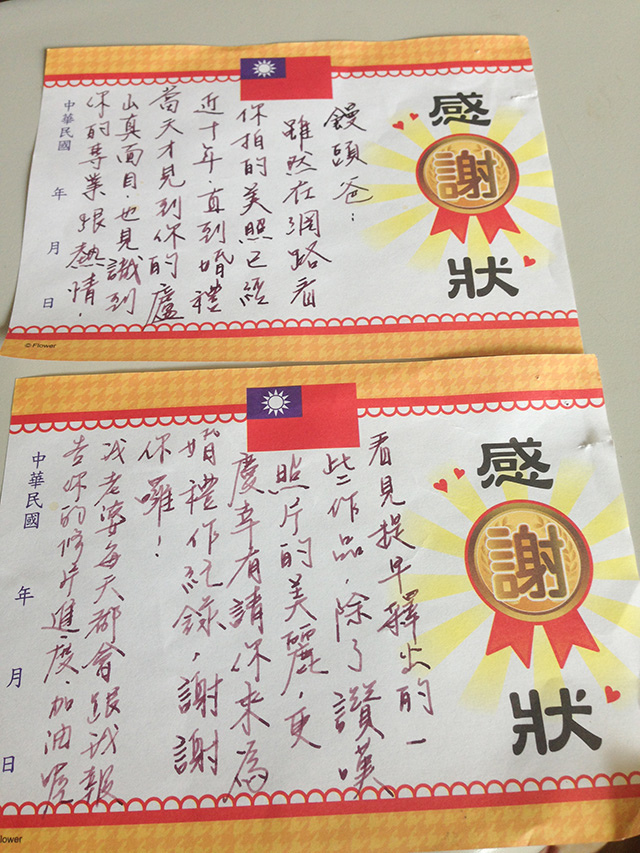 感
謝
狀
饅頭爸：
雖然在網路看
你拍的美照已經
近十年，直到婚禮
當天才見到你的廬
山真面目，也見識到
你的專業跟熱情，
中華民國　年　月　日
©Flower
感
謝
狀
看見提早釋出的一
些作品，除了讚嘆
照片的美麗，更
慶幸有請你來為
婚禮作紀錄，謝謝
你囉！
我老婆每天都會跟我報
告你的修片進度，加油喔
中華民國　年　月　日
lower